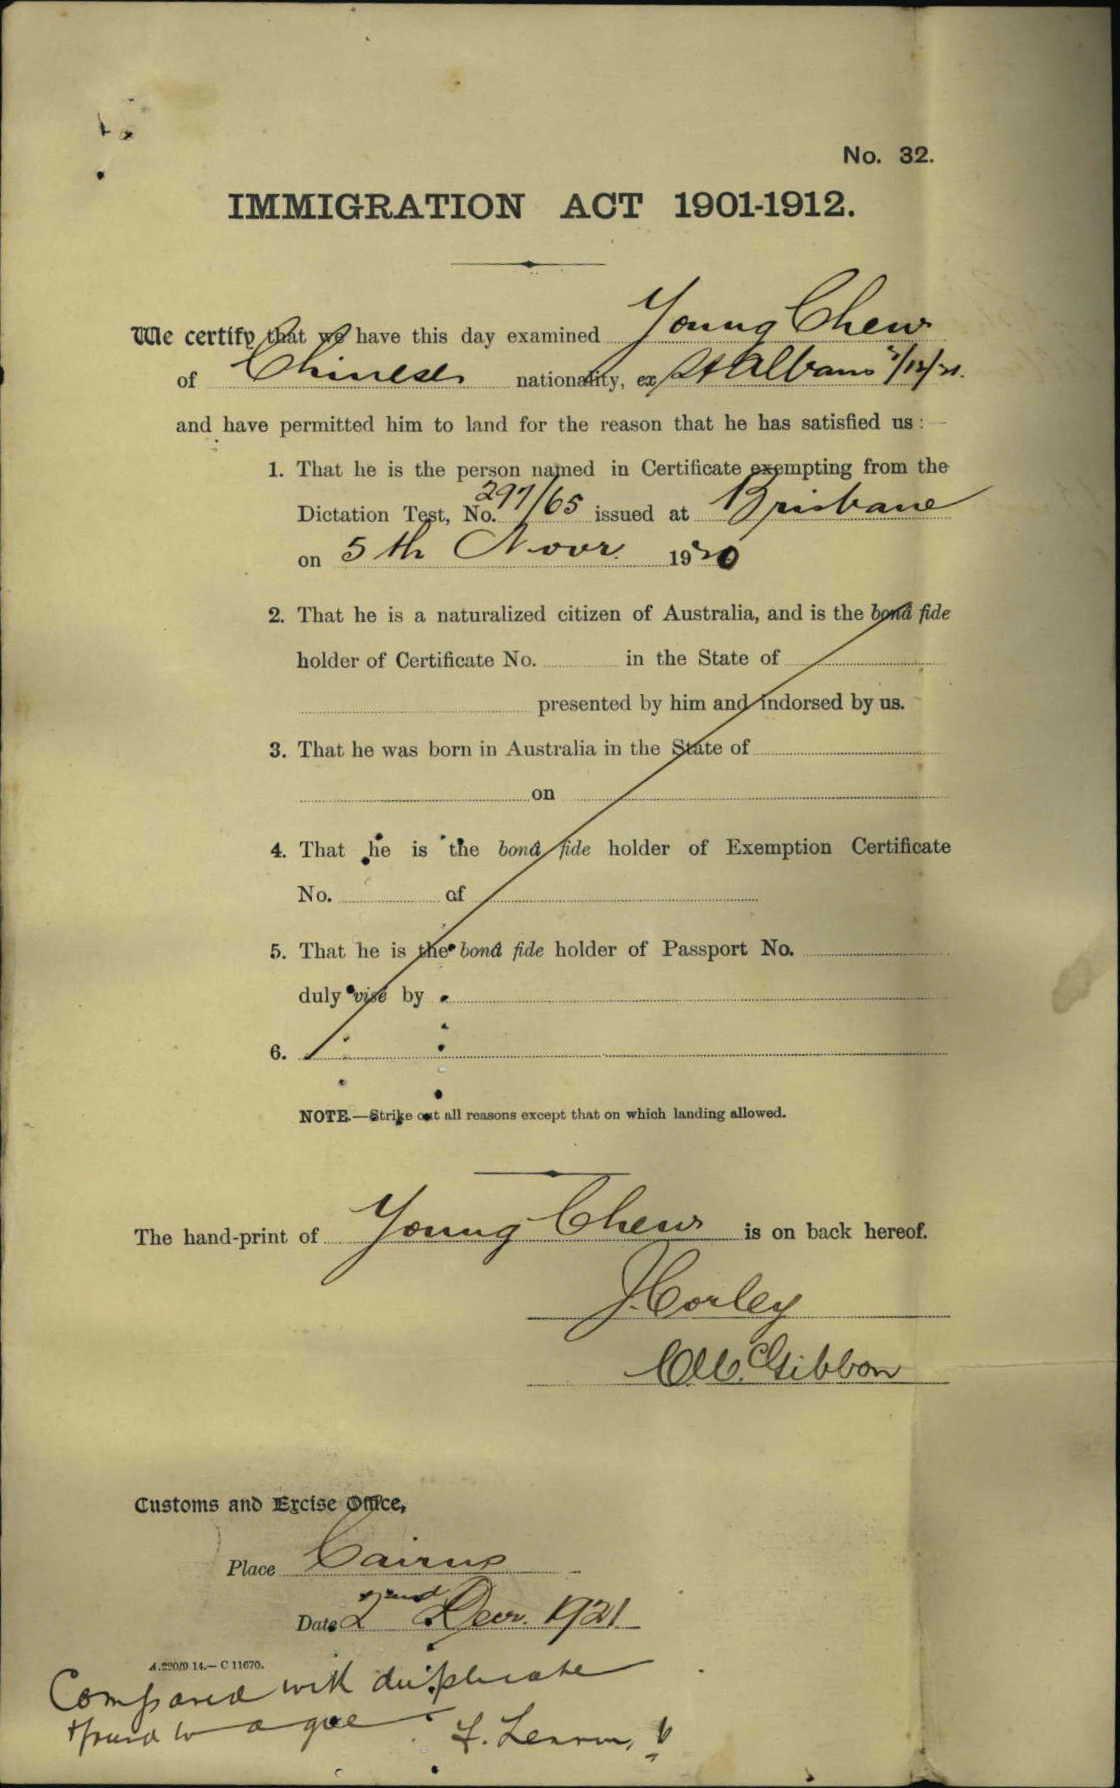 No. 32.
IMMIGRATION ACT 1901-1912.
We certify that we have this day examined Young Chew
of Chinese nationality, ex St Albans 2/12/21.
and have permitted him to land for the reason that he has satisfied us:—
1. That he is the person named in Certificate exempting from the
Dictation Test, No. 297/65 issued at Brisbane
on 5th Novr. 1920
2. That he is a naturalized citizen of Australia, and is the bonâ fide
holder of Certificate No. in the State of
presented by him and indorsed by us.
3. That he was born in Australia in the State of
on
4. That he is the bonâ fide holder of Exemption Certificate
No. of
5. That he is the bonâ fide holder of Passport No.
duly visé by
6.
NOTE.—Strike out all reasons except that on which landing allowed.
The hand-print of Young Chew is on back hereof.
J. Corley
McGibbon
Customs and Excise Office,
Place Cairns
Date 2nd Decr. 1921.
14.—C 11670.
Compared with duplicate
& found to agree